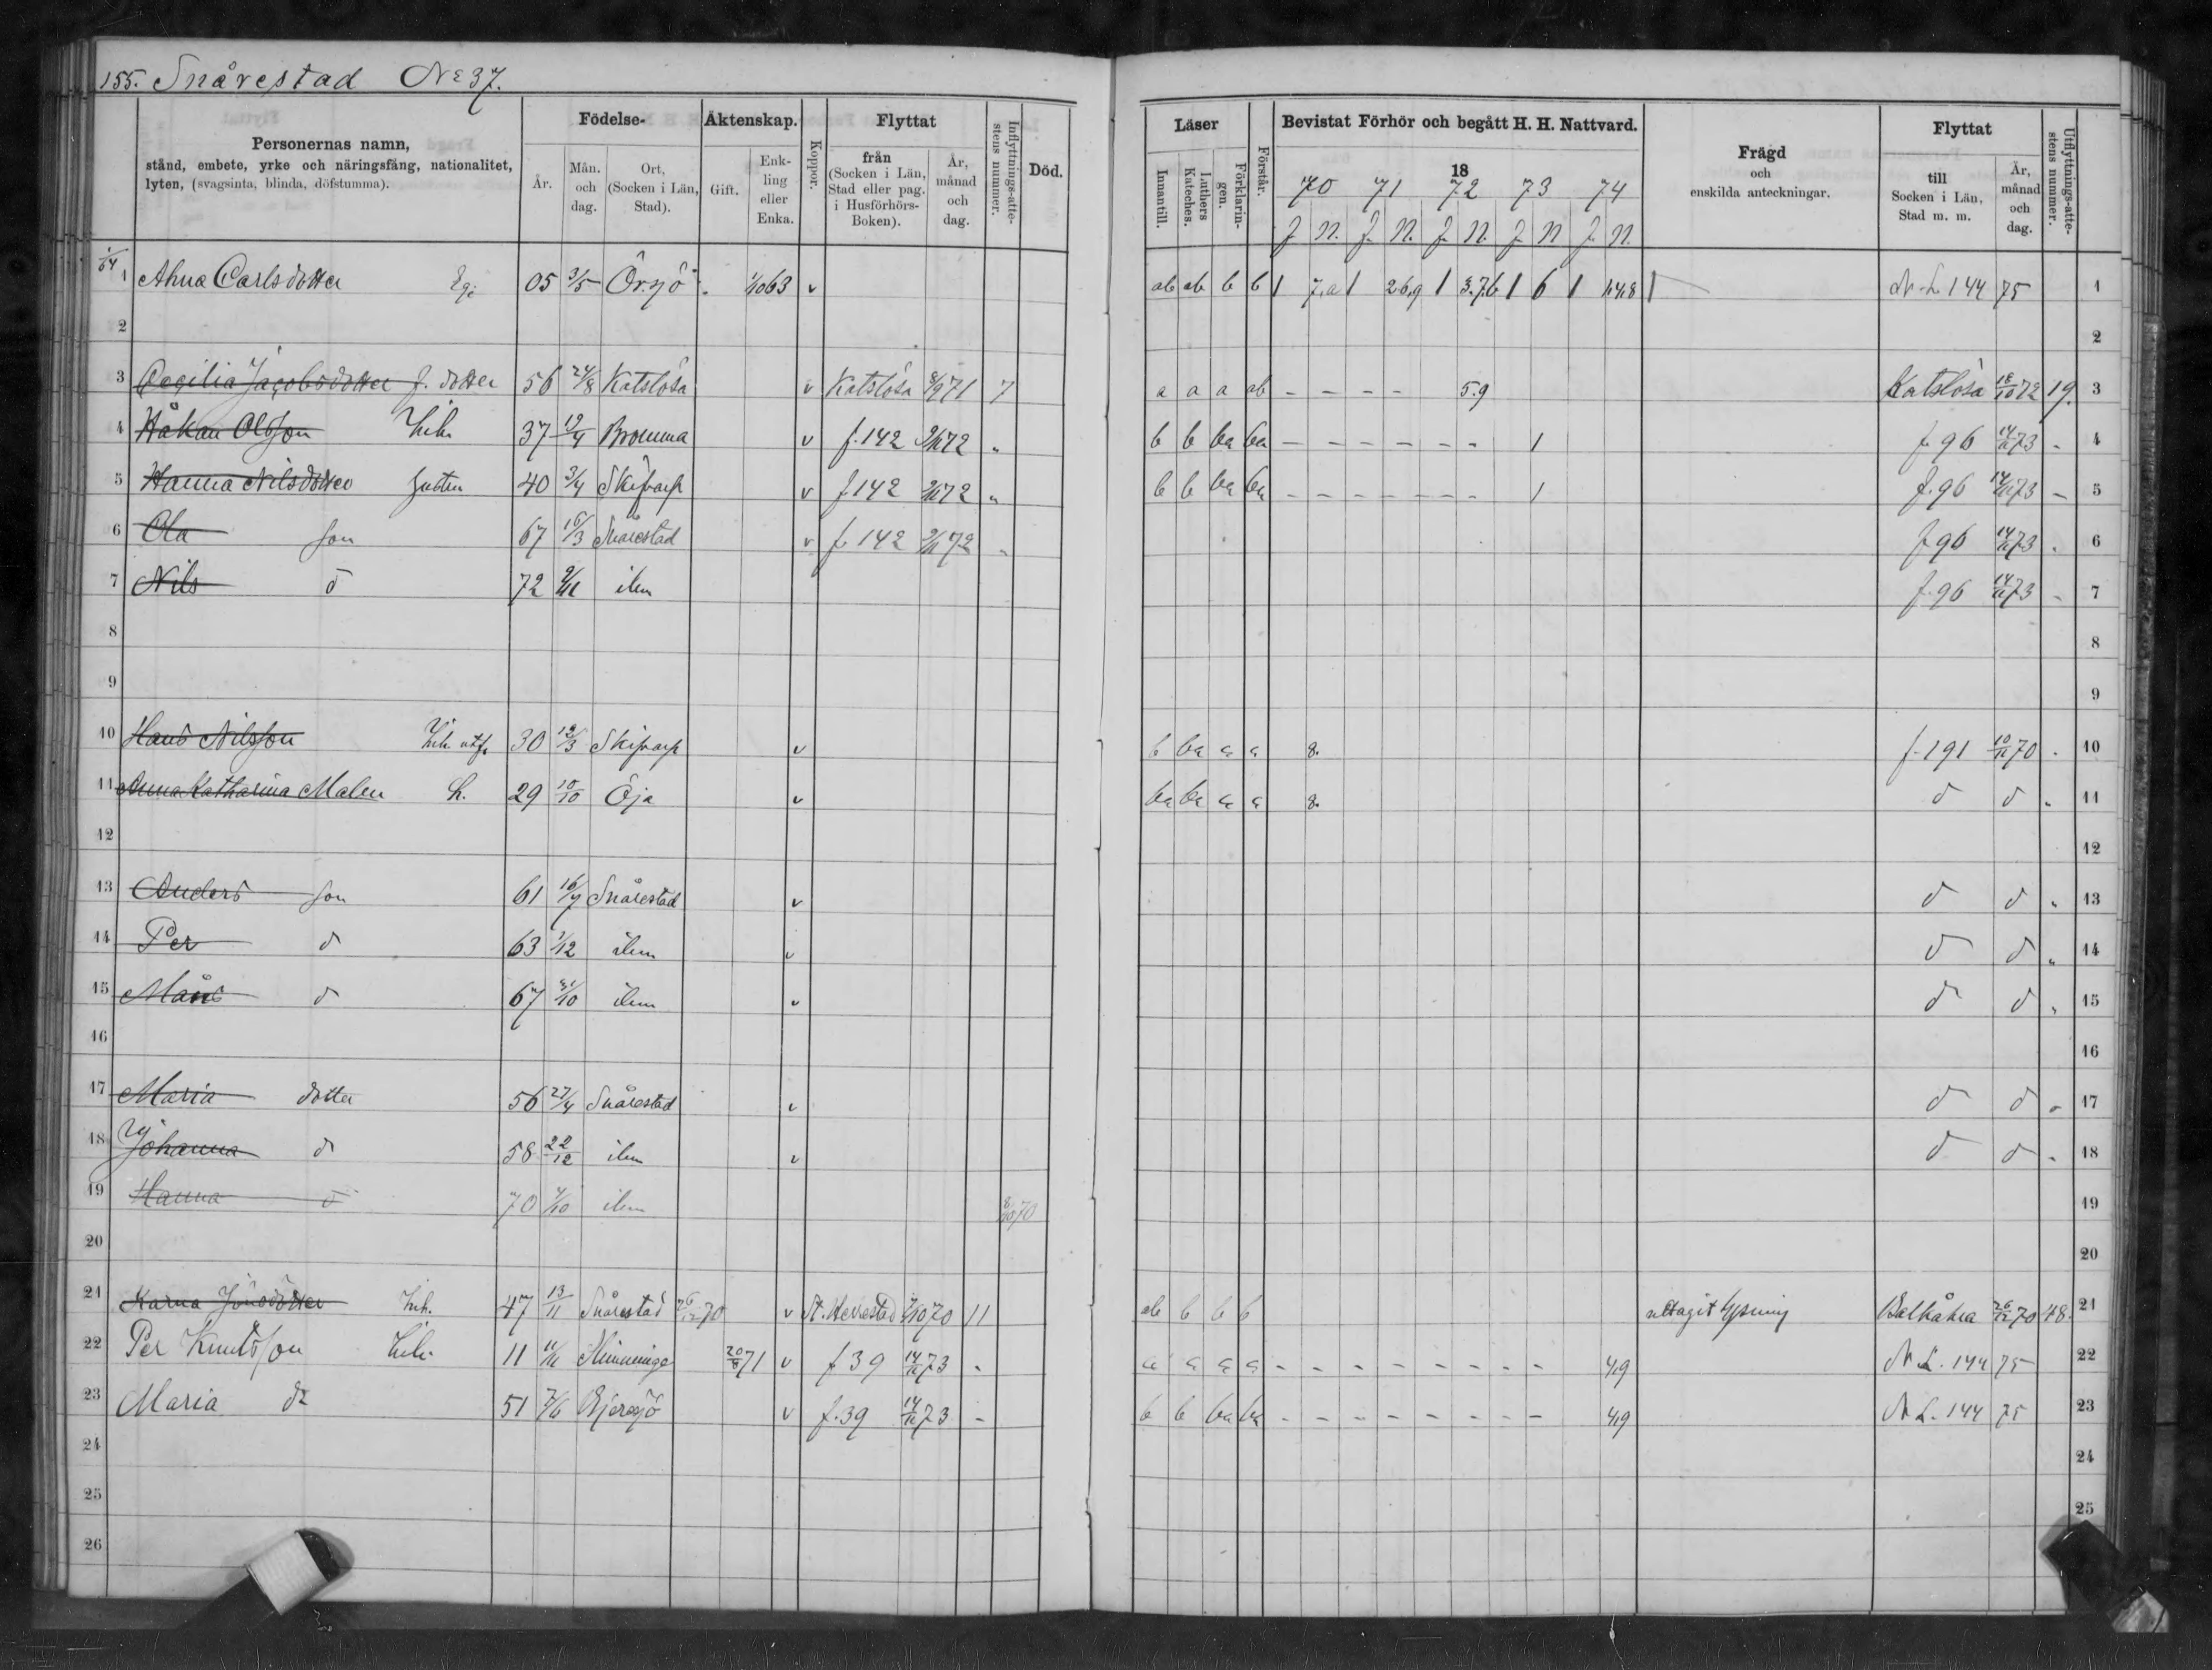 155. Snårestad No 37.
Personernas namn,
stånd, embete, yrke och näringsfång, nationalitet,
lyten, (svagsinta, blinda, döfstumma).
Födelse-
År.
Mån. och dag.
Ort, (Socken i Län, Stad).
Äktenskap.
Gift.
Enkling eller Enka.
Koppor.
Flyttat
från (Socken i Län, Stad eller pag. i Husförhörs-Boken).
År, månad och dag.
Inflyttnings-attestens nummer.
Död.
Läser
Innantill.
Luthers Kateches.
Förklaringen.
Förstår.
Bevistat Förhör och begått H. H. Nattvard.
18
70 71 72 73 74
f. N. f. N. f. N. f. N. f. N.
Frägd
och
enskilda anteckningar.
Flyttat
till Socken i Län, Stad m. m.
År, månad och dag.
Utflyttnings-attestens nummer.
1 Ahna Carlsdotter 05 3/5 Örsjö 63 v ab ab b b 1 1 26,9 1 3.7.6 1 6 1 N. L. 144 75 1
2 2
3 Cecilia Jacobsdotter f. dotter 56 24/8 Katslösa v Katslösa 8/9 71 7 a a a ab - - - - 5.9 Katslösa 18/10 72 19. 3
4 Håkan Olsson Inh. 37 19/4 Bromma v f. 142 72 „ b b ba ba - - - - - - - 1 f. 96 14/11 73 - 4
5 Hanna Nilsdotter hustru 40 3/4 Skifvarp v f. 142 72 „ b b ba ba - - - - - - - 1 f. 96 14/11 73 - 5
6 Ola son 67 16/3 Snårestad v f. 142 72 „ f. 96 14/11 73 - 6
7 Nils d 72 9/11 ibm f. 96 14/11 73 - 7
8 8
9 9
10 Hans Nilsson Inh. 30 12/3 Skifvarp v b ba a a 8. f. 191 10/11 70 - 10
11 Anna Katharina Malen h. 29 10/10 Öja v ba ba a a 8. d d „ 11
12 12
13 Anders son 61 16/7 Snårestad v d d „ 13
14 Per d 63 1/12 ibm v d d „ 14
15 Måns d 67 31/10 ibm v d d „ 15
16 16
17 Maria dotter 56 27/4 Snårestad v d d „ 17
18 Johanna d 58 22/12 ibm v d d „ 18
19 Hanna d 70 ibm 70 19
20 20
21 Karna Jönsdotter Inh. 47 13/11 Snårestad 26/12 70 v St. Herrestad 70 11 ab b b b uttagit lysning Balkåkra 26/12 70 48. 21
22 Per Knutsson Inh. 11 11/11 Slimminge 20/8 71 v f 39 14/11 73 - a a a a - - - - - - - - 4,9 N. L. 144 75 22
23 Maria dr 51 7/6 Bjeresjö v f. 39 14/11 73 - b b ba ba - - - - - - - - 4,9 N. L. 144 75 23
24 24
25 25
26